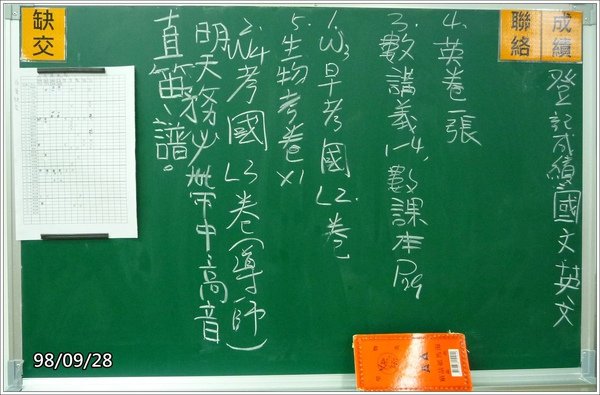 成績
登記成績:國文、英文
聯絡
4.英卷一張
3.數講義1-4,數課本P29
1.W3早考國L2.卷
5.生物考卷x1
2.W4考國L3卷(導師)
明天務必帶中高音
直笛、譜。
缺交
98/09/28